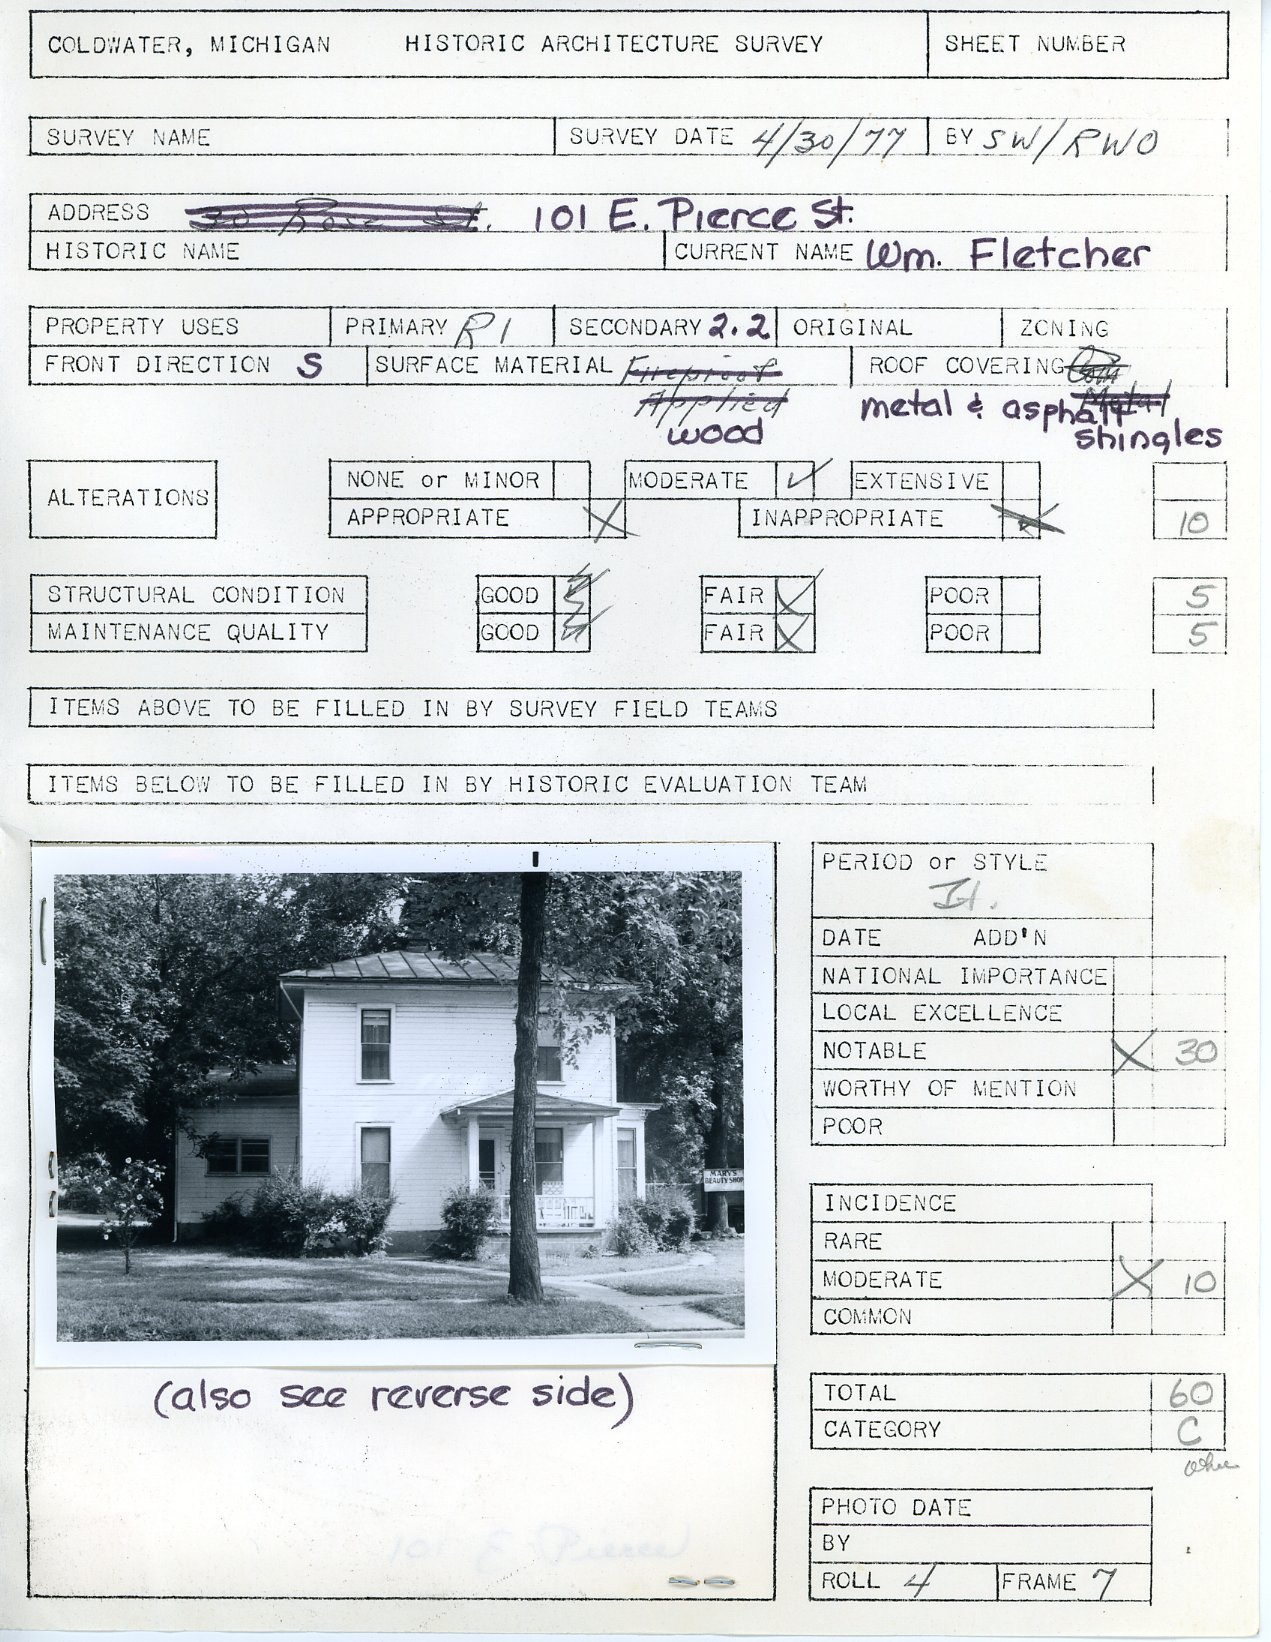 COLDWATER, MICHIGAN HISTORIC ARCHITECTURE SURVEY SHEET NUMBER
SURVEY NAME SURVEY DATE 4/30/77 BY SW/RWO
ADDRESS 30 Rose St. 101 E. Pierce St.
HISTORIC NAME CURRENT NAME Wm. Fletcher
PROPERTY USES PRIMARY R1 SECONDARY 2.2 ORIGINAL ZONING
FRONT DIRECTION S SURFACE MATERIAL Fireproof ROOF COVERING
Applied Metal
metal & asphalt
wood shingles
ALTERATIONS NONE or MINOR MODERATE ✓ EXTENSIVE
APPROPRIATE X INAPPROPRIATE 10
STRUCTURAL CONDITION GOOD FAIR X POOR 5
MAINTENANCE QUALITY GOOD FAIR X POOR 5
ITEMS ABOVE TO BE FILLED IN BY SURVEY FIELD TEAMS
ITEMS BELOW TO BE FILLED IN BY HISTORIC EVALUATION TEAM
MARY'S
BEAUTY SHOP
(also see reverse side)
101 E Pierce
PERIOD or STYLE
It.
DATE ADD'N
NATIONAL IMPORTANCE
LOCAL EXCELLENCE
NOTABLE X 30
WORTHY OF MENTION
POOR
INCIDENCE
RARE
MODERATE X 10
COMMON
TOTAL 60
CATEGORY C
PHOTO DATE
BY
ROLL 4 FRAME 7